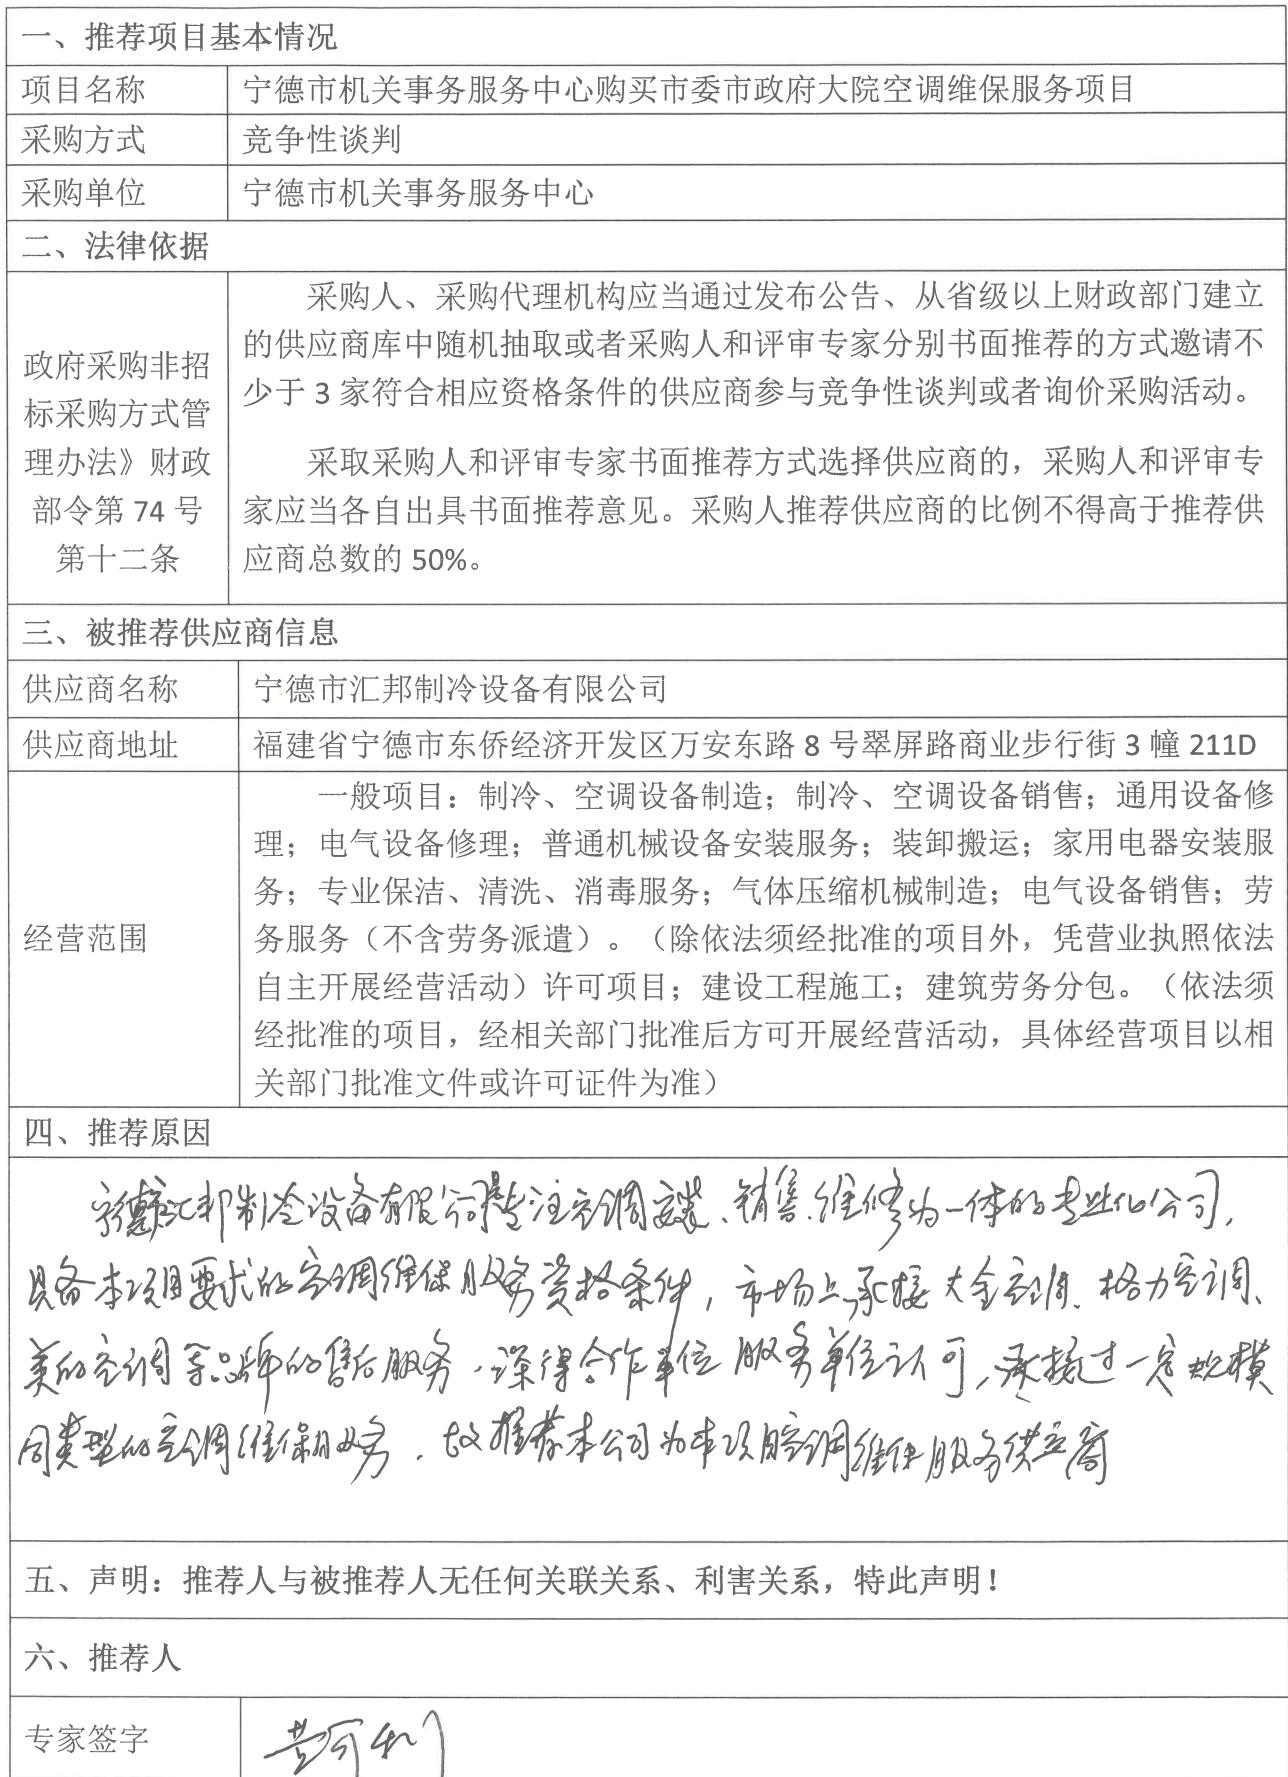 一、推荐项目基本情况
项目名称
宁德市机关事务服务中心购买市委市政府大院空调维保服务项目
采购方式
竞争性谈判
采购单位
宁德市机关事务服务中心
二、法律依据
政府采购非招
标采购方式管
理办法》财政
部令第 74 号
第十二条
采购人、采购代理机构应当通过发布公告、从省级以上财政部门建立
的供应商库中随机抽取或者采购人和评审专家分别书面推荐的方式邀请不
少于 3 家符合相应资格条件的供应商参与竞争性谈判或者询价采购活动。
采取采购人和评审专家书面推荐方式选择供应商的，采购人和评审专
家应当各自出具书面推荐意见。采购人推荐供应商的比例不得高于推荐供
应商总数的 50%。
三、被推荐供应商信息
供应商名称
宁德市汇邦制冷设备有限公司
供应商地址
福建省宁德市东侨经济开发区万安东路 8 号翠屏路商业步行街 3 幢 211D
经营范围
一般项目：制冷、空调设备制造；制冷、空调设备销售；通用设备修
理；电气设备修理；普通机械设备安装服务；装卸搬运；家用电器安装服
务；专业保洁、清洗、消毒服务；气体压缩机械制造；电气设备销售；劳
务服务（不含劳务派遣）。（除依法须经批准的项目外，凭营业执照依法
自主开展经营活动）许可项目；建设工程施工；建筑劳务分包。（依法须
经批准的项目，经相关部门批准后方可开展经营活动，具体经营项目以相
关部门批准文件或许可证件为准）
四、推荐原因
宁德市汇邦制冷设备有限公司是专注空调安装、销售、维修为一体的专业化公司，
具备本项目要求的空调维保服务资格条件，市场上承接大金空调、格力空调、
美的空调等品牌的售后服务，深得合作单位服务单位认可，承接过一定规模
同类型的空调维保服务，故推荐本公司为本项目空调维保服务供应商
五、声明：推荐人与被推荐人无任何关联关系、利害关系，特此声明！
六、推荐人
专家签字